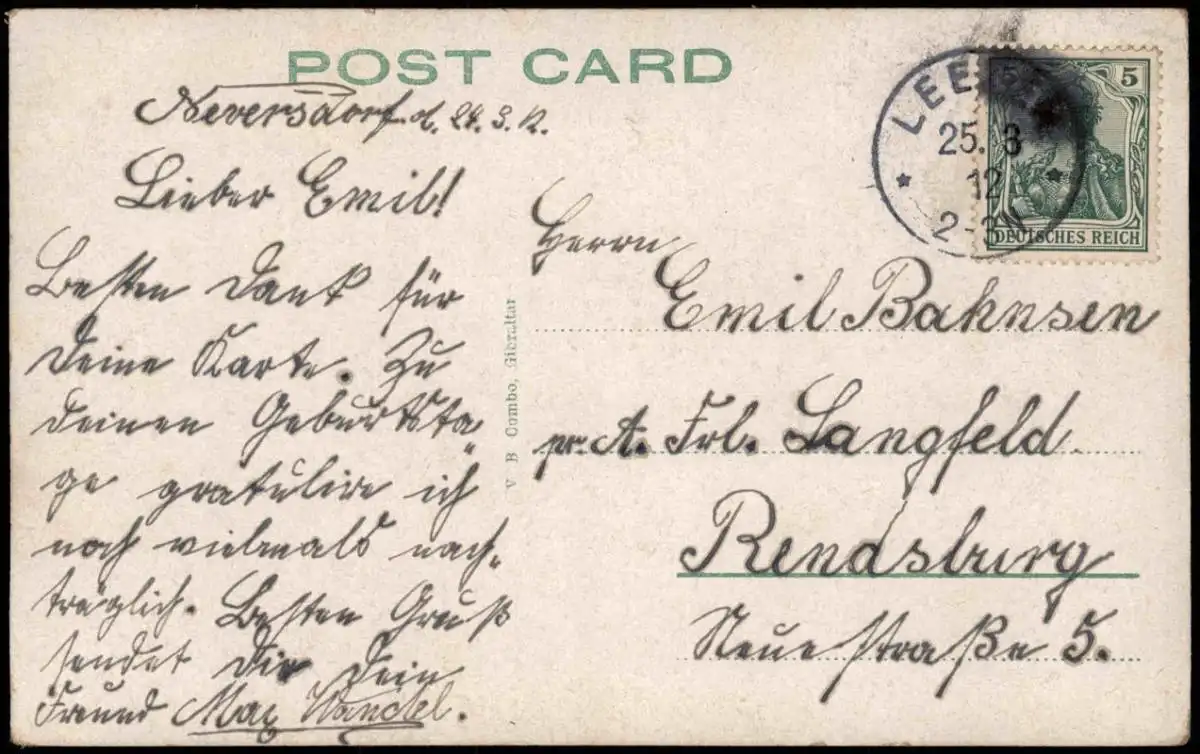 POST CARD
Neversdorf d. 24. 3. 12.
Lieber Emil!
Besten Dank für
Deine Karte. Zu
deinen Geburtsta-
ge gratulire ich
noch vielmals nach-
träglich. Besten Gruß
sendet Dir Dein
Freund Max
V B Cumbo, Gibraltar
25. 3
12
DEUTSCHES REICH
5
5
Herrn
Emil Bahnsen
pr. A. Frl. Langfeld
Rendsburg
Neue straße 5.